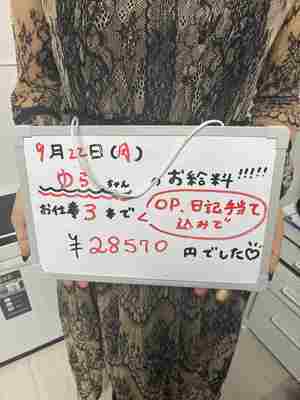 9月22日(月)
ゆらちゃんのお給料!!!!!
お仕事3本で OP、日記手当て込みで
¥28570円でした♡